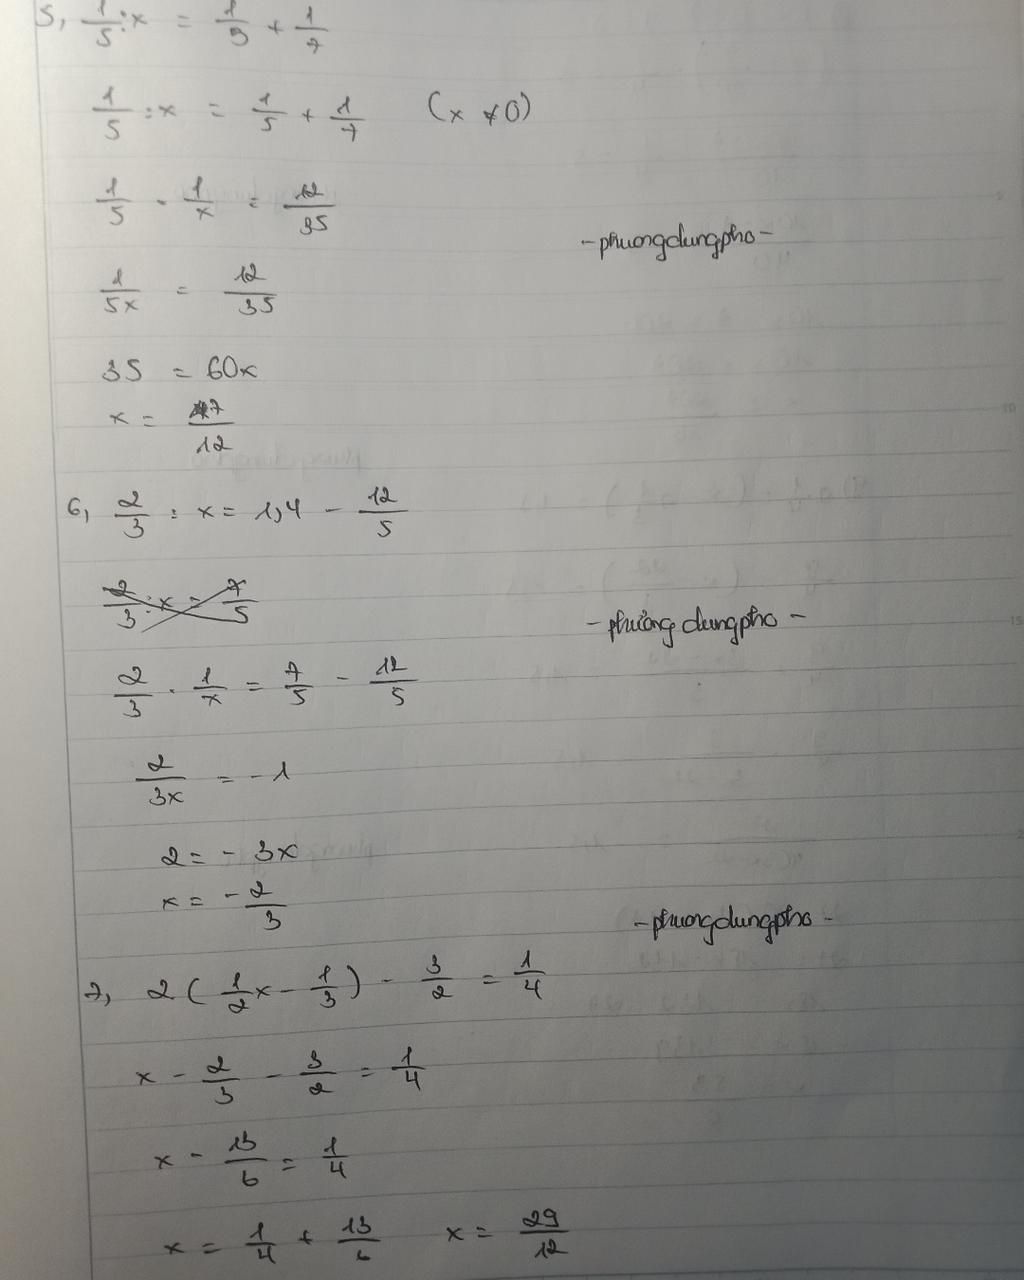 5, 1/5 : x = 1/5 + 1/7
1/5 : x = 1/5 + 1/7 (x ≠ 0)
1/5 · 1/x = 12/35
-phuongdungpho-
1/5x = 12/35
35 = 60x
x = 7/12
6, 2/3 : x = 1,4 - 12/5
2/3 : x = 7/5
-phường dungpho-
2/3 · 1/x = 7/5 - 12/5
2/3x = -1
2 = -3x
x = -2/3
-phuongdungpho-
7, 2(1/2x - 1/3) - 3/2 = 1/4
x - 2/3 - 3/2 = 1/4
x - 13/6 = 1/4
x = 1/4 + 13/6 x = 29/12